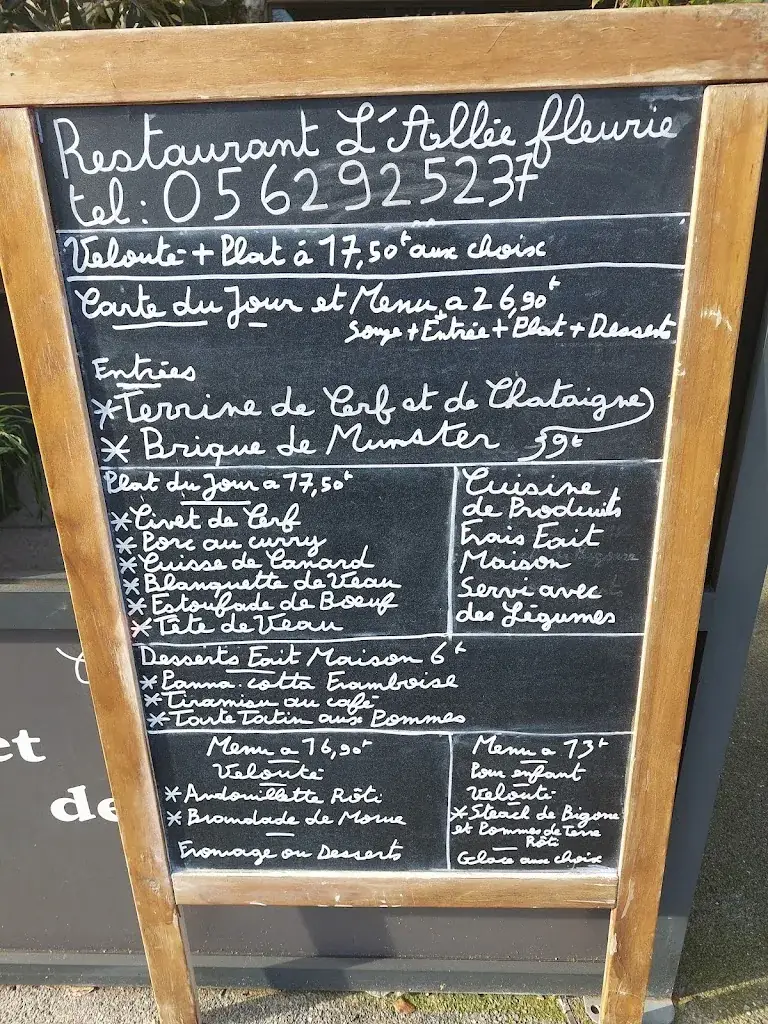 Restaurant L'Allée fleurie
tel: 0562925237
Velouté + Plat à 17,50€ aux choix
Carte du Jour et Menu a 26,90€
Soupe + Entrée + Plat + Desserts
Entrées
*Terrine de Cerf et de Chataigne
* Brique de Munster 9€
Plat du Jour a 17,50€
*Civet de Cerf
*Porc au curry
*Cuisse de Canard
*Blanquette de Veau
*Estoufade de Boeuf
*Tête de Veau
Cuisine
de Produits
Frais Fait
Maison
Servi avec
des Légumes
Desserts Fait Maison 6€
*Panna-cotta Framboise
*Tiramisu au café
*Tarte Tatin aux Pommes
Menu a 16,90€
Velouté
*Andouillette Rôti
*Brandade de Morue
Fromage ou Desserts
Menu a 13€
Pour enfant
Velouté
*Steack de Bigorre
et Pommes de Terre
Rôti
Glace aux choix
et
de